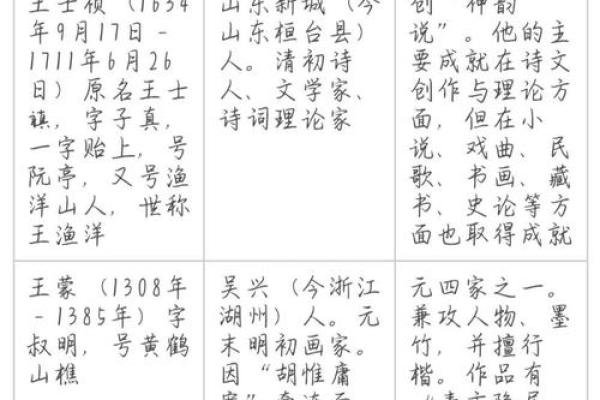 王士祯（1634
年9月17日－
1711年6月26
日）原名王士
禛，字子真，
一字贻上，号
阮亭，又号渔
洋山人，世称
王渔洋
山东新城（今
山东桓台县）
人。清初诗
人、文学家、
诗词理论家
创“神韵
说”。他的主
要成就在诗文
创作与理论方
面，但在小
说、戏曲、民
歌、书画、藏
书、史论等方
面也取得成就
王蒙（1308年
－1385年）字
叔明，号黄鹤
山樵
吴兴（今浙江
湖州）人。元
末明初画家。
因“胡惟庸
元四家之一。
兼攻人物、墨
竹，并擅行
楷。作品有